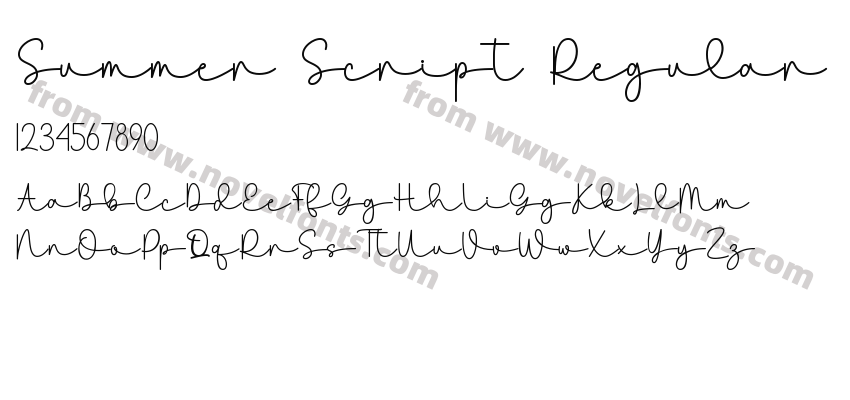 Summer Script Regular
from www.novelfonts.com
from www.novelfonts.com
1234567890
AaBbCcDdEeFfGgHhIiGgKkLlMm
NnOoPpQqRrSsTtUuVvWwXxYyZz